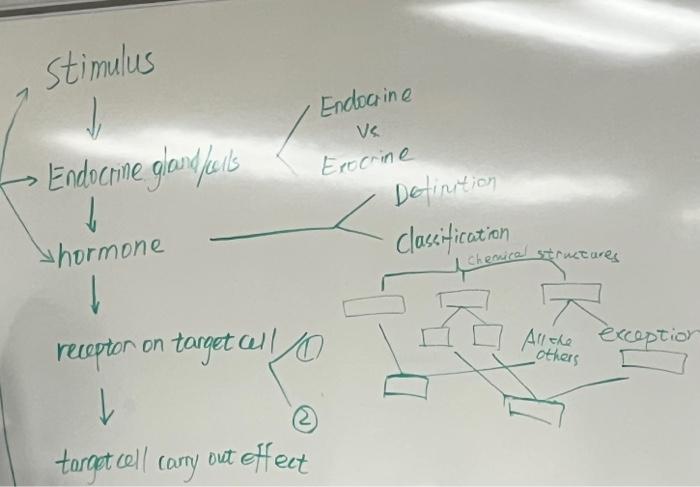 Stimulus
Endocrine gland/cells
hormone
receptor on target cell
target cell carry out effect
Endocrine
Vs
Exocrine
Definition
Classification
Chemical structures
All the
others
exception
①
②